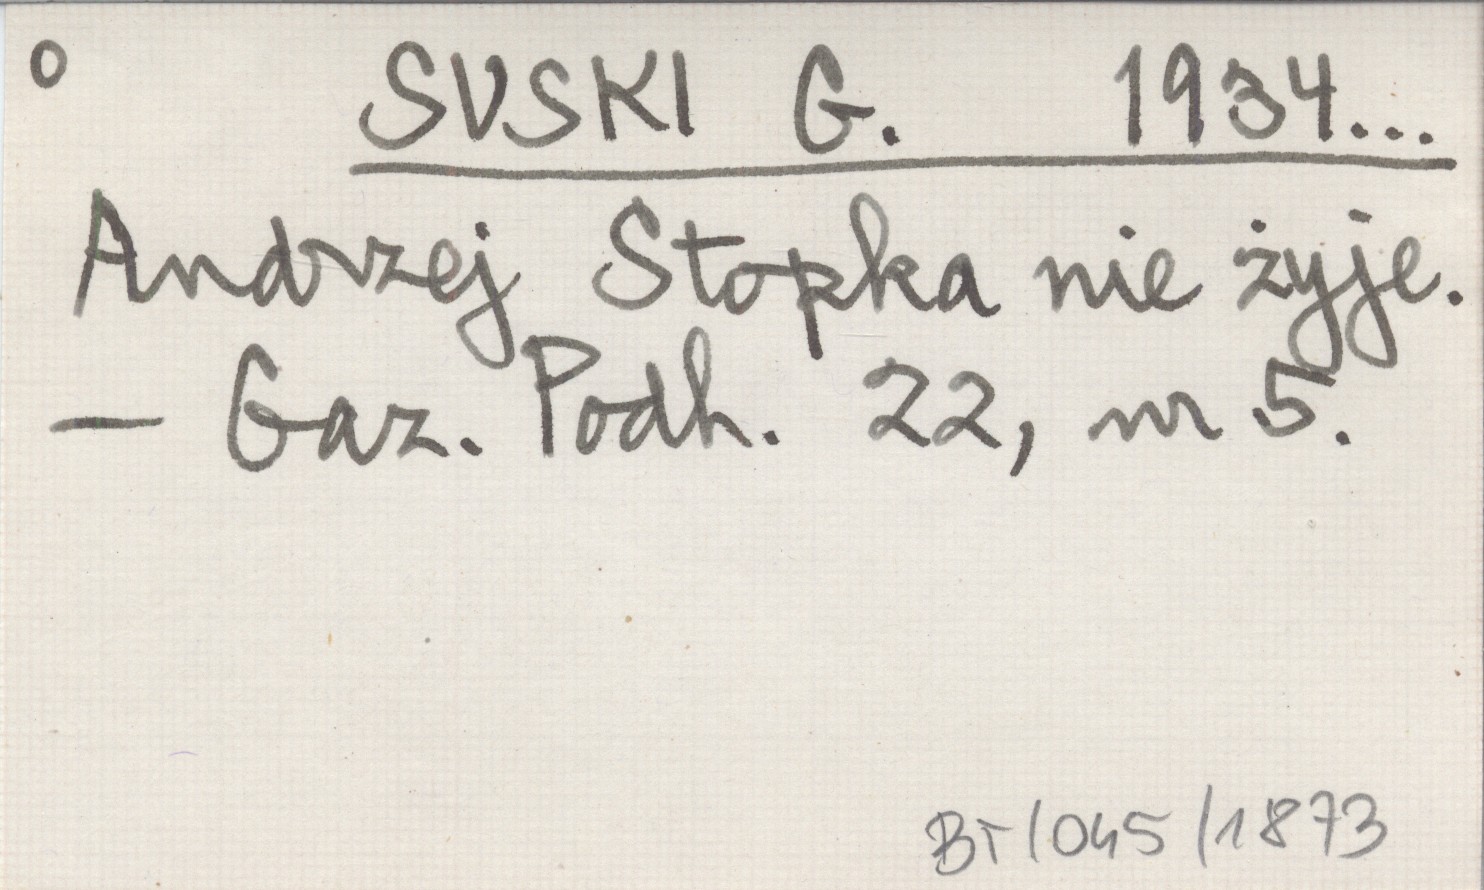 o SUSKI G. 1934...
Andrzej Stopka nie żyje.
— Gaz. Podh. 22, nr 5.
BT/045/1873